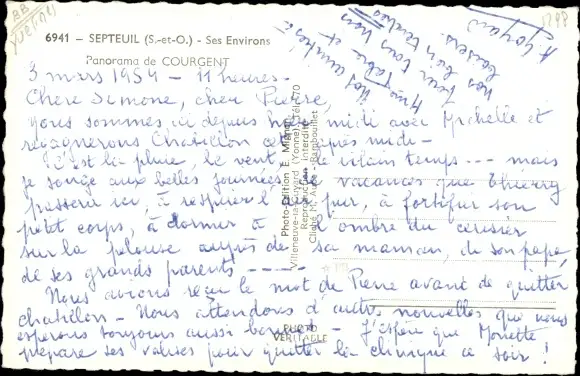 BB
YVELINES
1298
6941 – SEPTEUIL (S.-et-O.) - Ses Environs
Panorama de COURGENT
3 mars 1954 - 11 heures -
Chère Simone, cher Pierre,
nous sommes ici depuis hier midi avec Michelle et
regagnerons Chatillon cet après midi -
C'est la pluie, le vent, le vilain temps --- mais
je songe aux belles journées de vacances que Thierry
passera ici, à respirer l'air pur, à fortifier son
petit corps, à dormir à l'ombre du cerisier
sur la pelouse auprès de sa maman, de son papa,
de ses grands parents ----
Nous avions reçu le mot de Pierre avant de quitter
chatillon - Nous attendons d'autres nouvelles que nous
espérons toujours aussi bonnes - J'espère que
prépare ses valises pour quitter la clinique ce soir !
amitiés à
Mme et
pour tous vous
nos bien tendres
baisers.
Photo-Edition E. Mignon
Villeneuve-la-Guyard (Yonne) Tél. 70
Reproduction interdite
Cliché M. - Rambouillet
PHOTO
VÉRITABLE